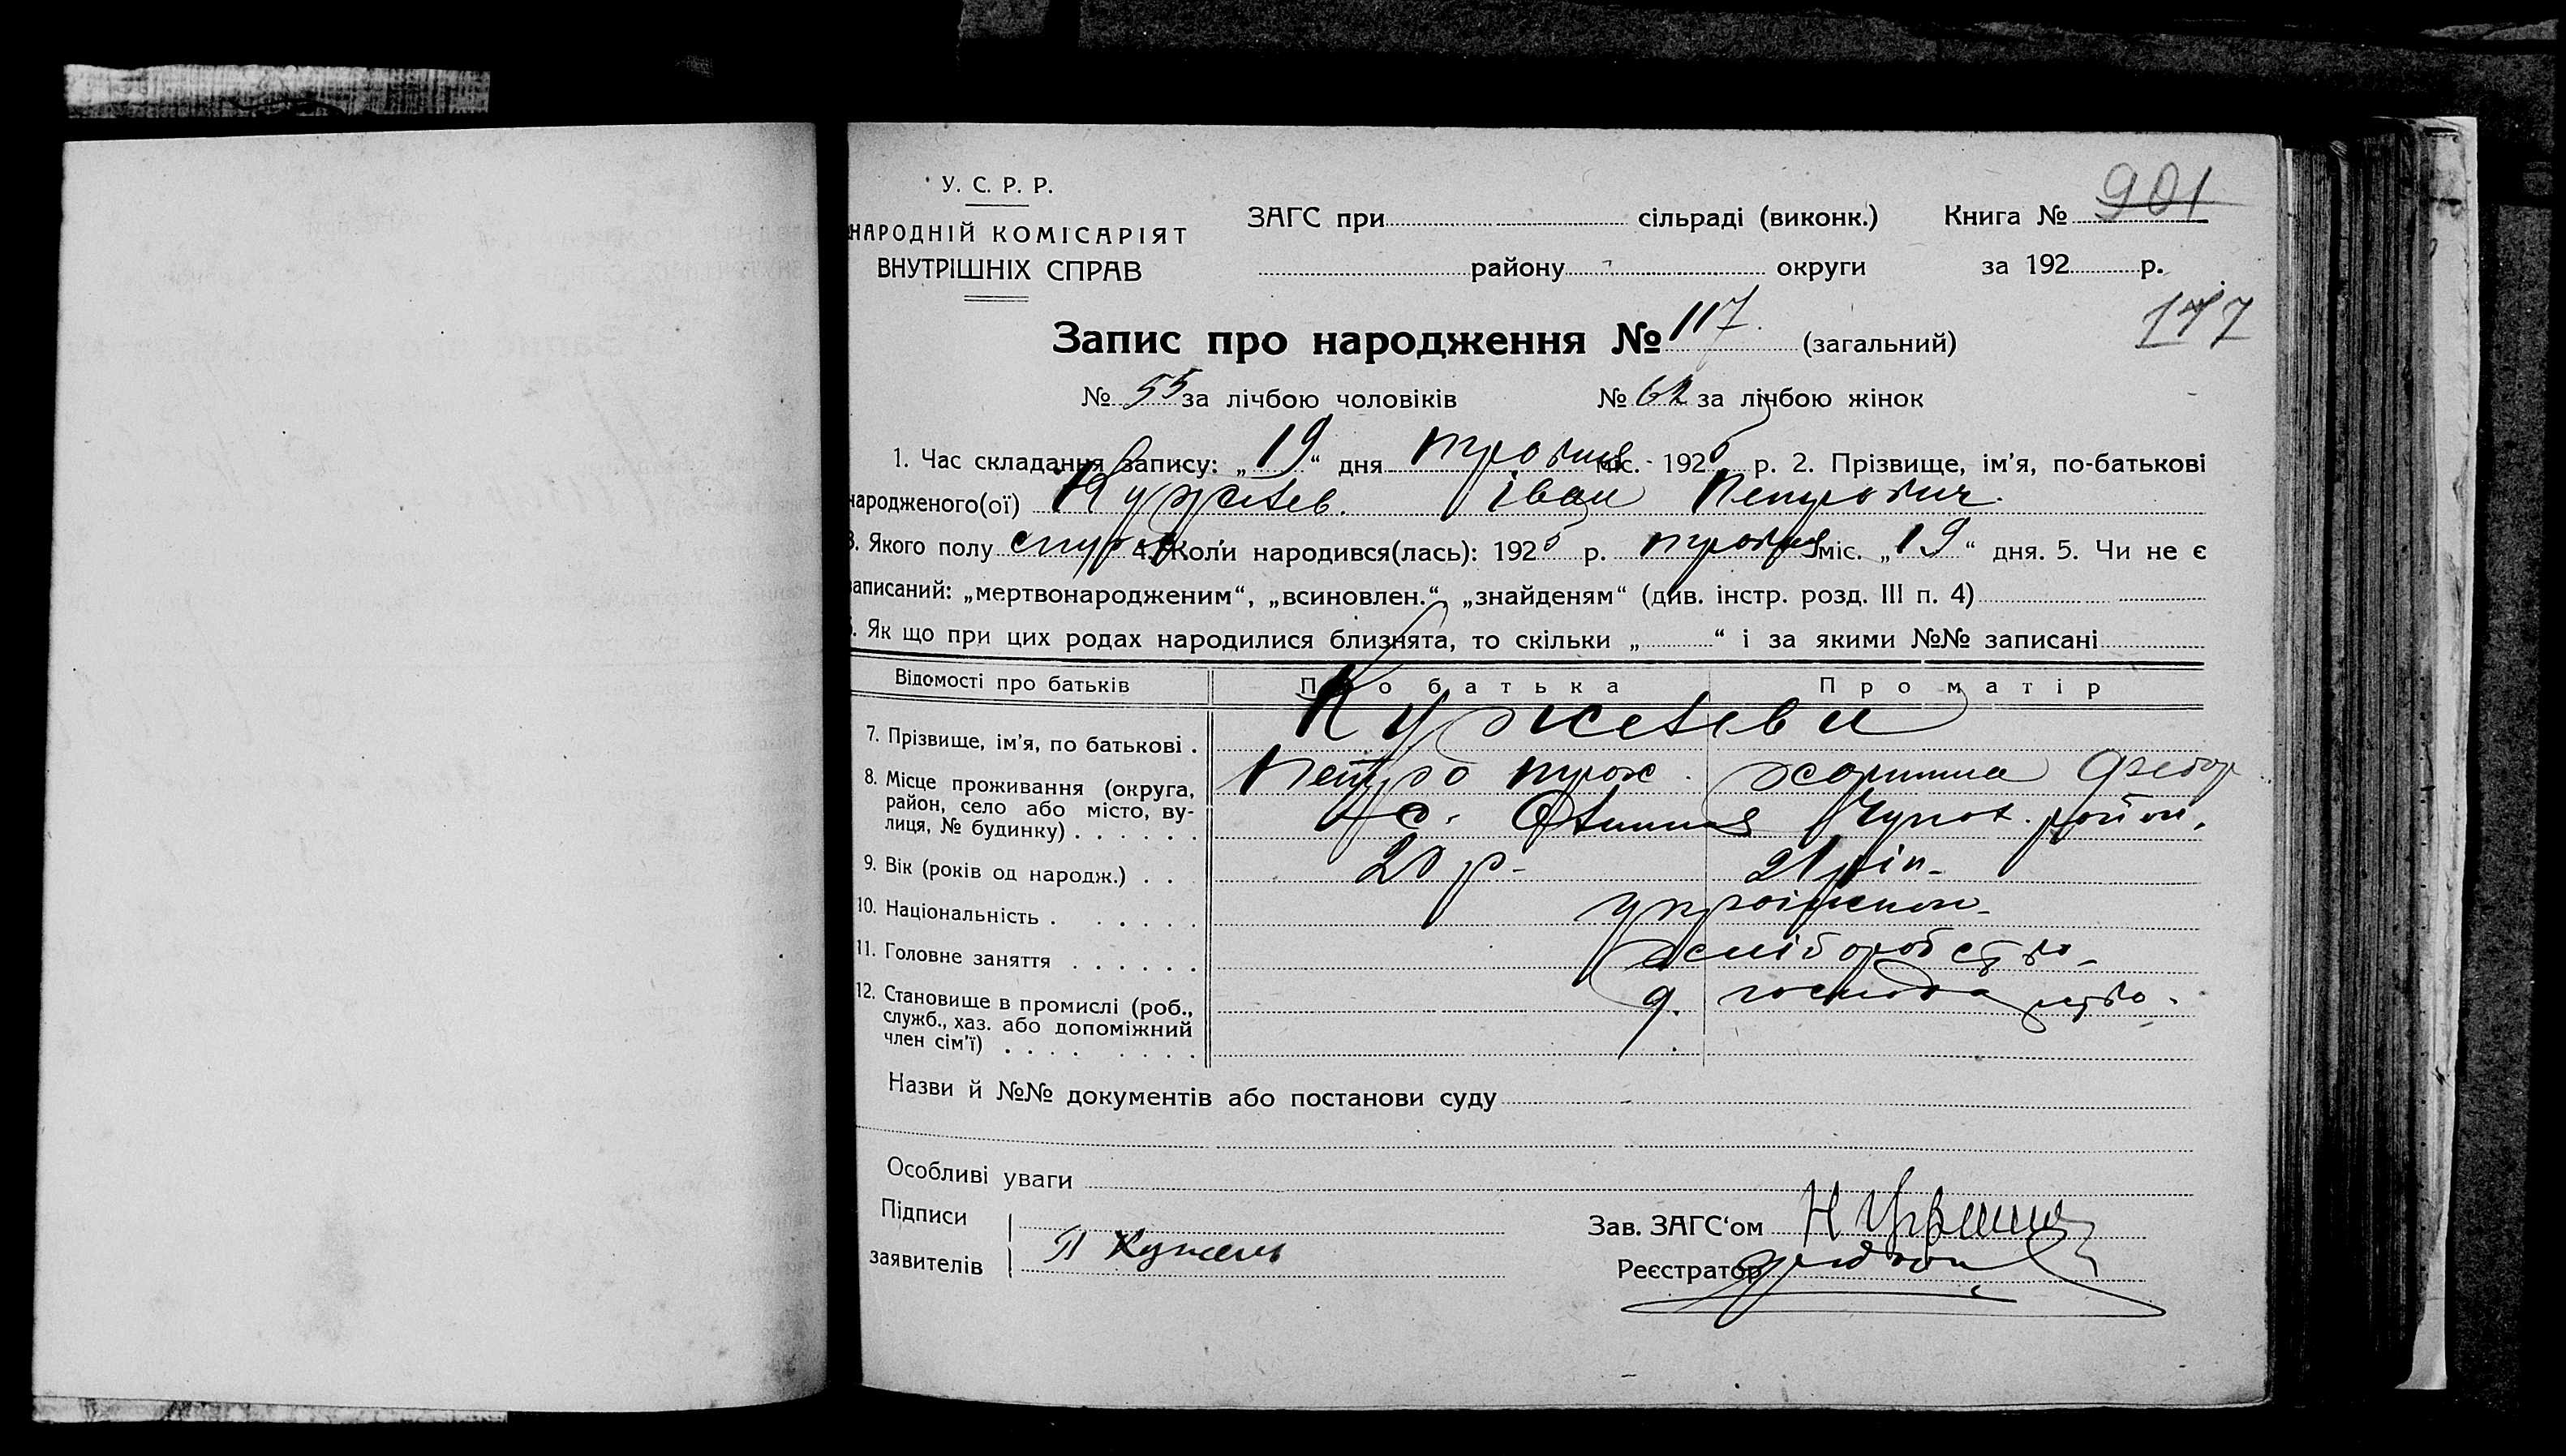 У. С. Р. Р.
НАРОДНІЙ КОМІСАРІЯТ
ВНУТРІШНІХ СПРАВ
ЗАГС при сільраді (виконк.) Книга № 901
району округи за 192 р.
Запис про народження № 117 (загальний)
№ 55 за лічбою чоловіків № 62 за лічбою жінок
1. Час складання запису: „19“ дня травня міс. 1925 р. 2. Прізвище, ім’я, по-батькові
народженого(ої) Іван Петрович
3. Якого полу 4. Коли народився(лась): 1925 р. травня міс. „19“ дня. 5. Чи не є
записаний: „мертвонародженим“, „всиновлен.“, „знайденям“ (див. інстр. розд. III п. 4)
6. Як що при цих родах народилися близнята, то скільки „ “ і за якими №№ записані
Відомості про батьків Про батька Про матір
7. Прізвище, ім’я, по батькові .
Петро
8. Місце проживання (округа,
район, село або місто, ву-
лиця, № будинку) . . . . . .
с. район.
9. Вік (років од народж.) . . 20 р. 21 рік
10. Національність .
11. Головне заняття . . . . . . хліборобство
12. Становище в промислі (роб.,
служб., хаз. або допоміжний
член сім’ї) . . . .
Назви й №№ документів або постанови суду
Особливі уваги
Підписи
заявителів П Кужель
Зав. ЗАГС‘ом
Реєстратор